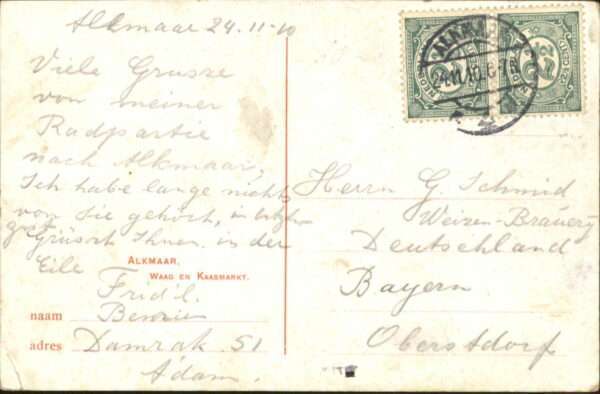 Alkmaar 24.11-10
Viele Grusze
von meiner
Radpartie
nach Alkmaar,
Ich habe lange nichts
von Sie gehört, in letzter
Grüsst Ihnen in der
Eile
ALKMAAR.
WAAG EN KAASMARKT.
Frid'l.
naam
adres Damrak 51
A'dam.
ALKMAAR
24.11.10.6-7N
Herrn G. Schmid
Weizen-Brauery
Deutschland
Bayern
Oberstdorf